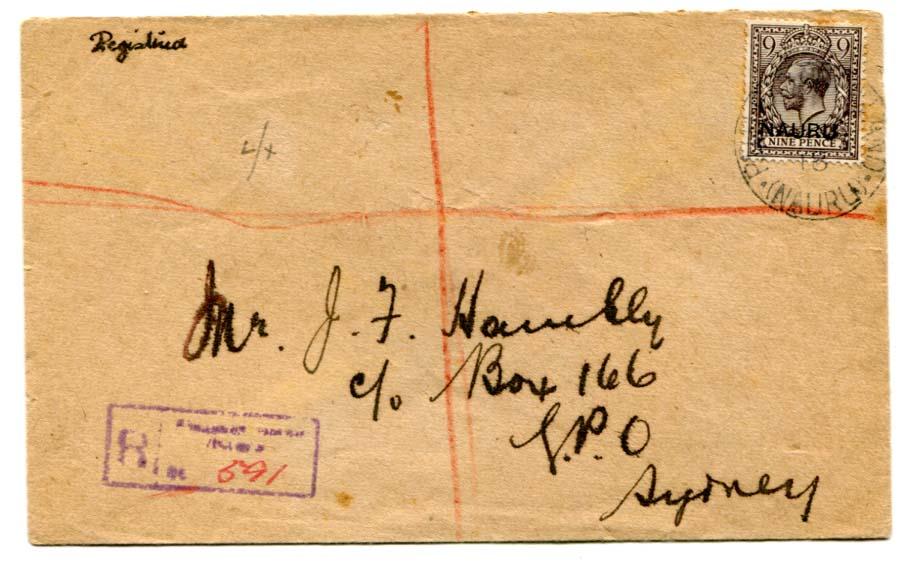 Registered
9 9
NAURU
NINE PENCE
(NAURU)
4/x
Mr. J. F. Hambly
c/o Box 166
G.P.O
Sydney
R
No 591